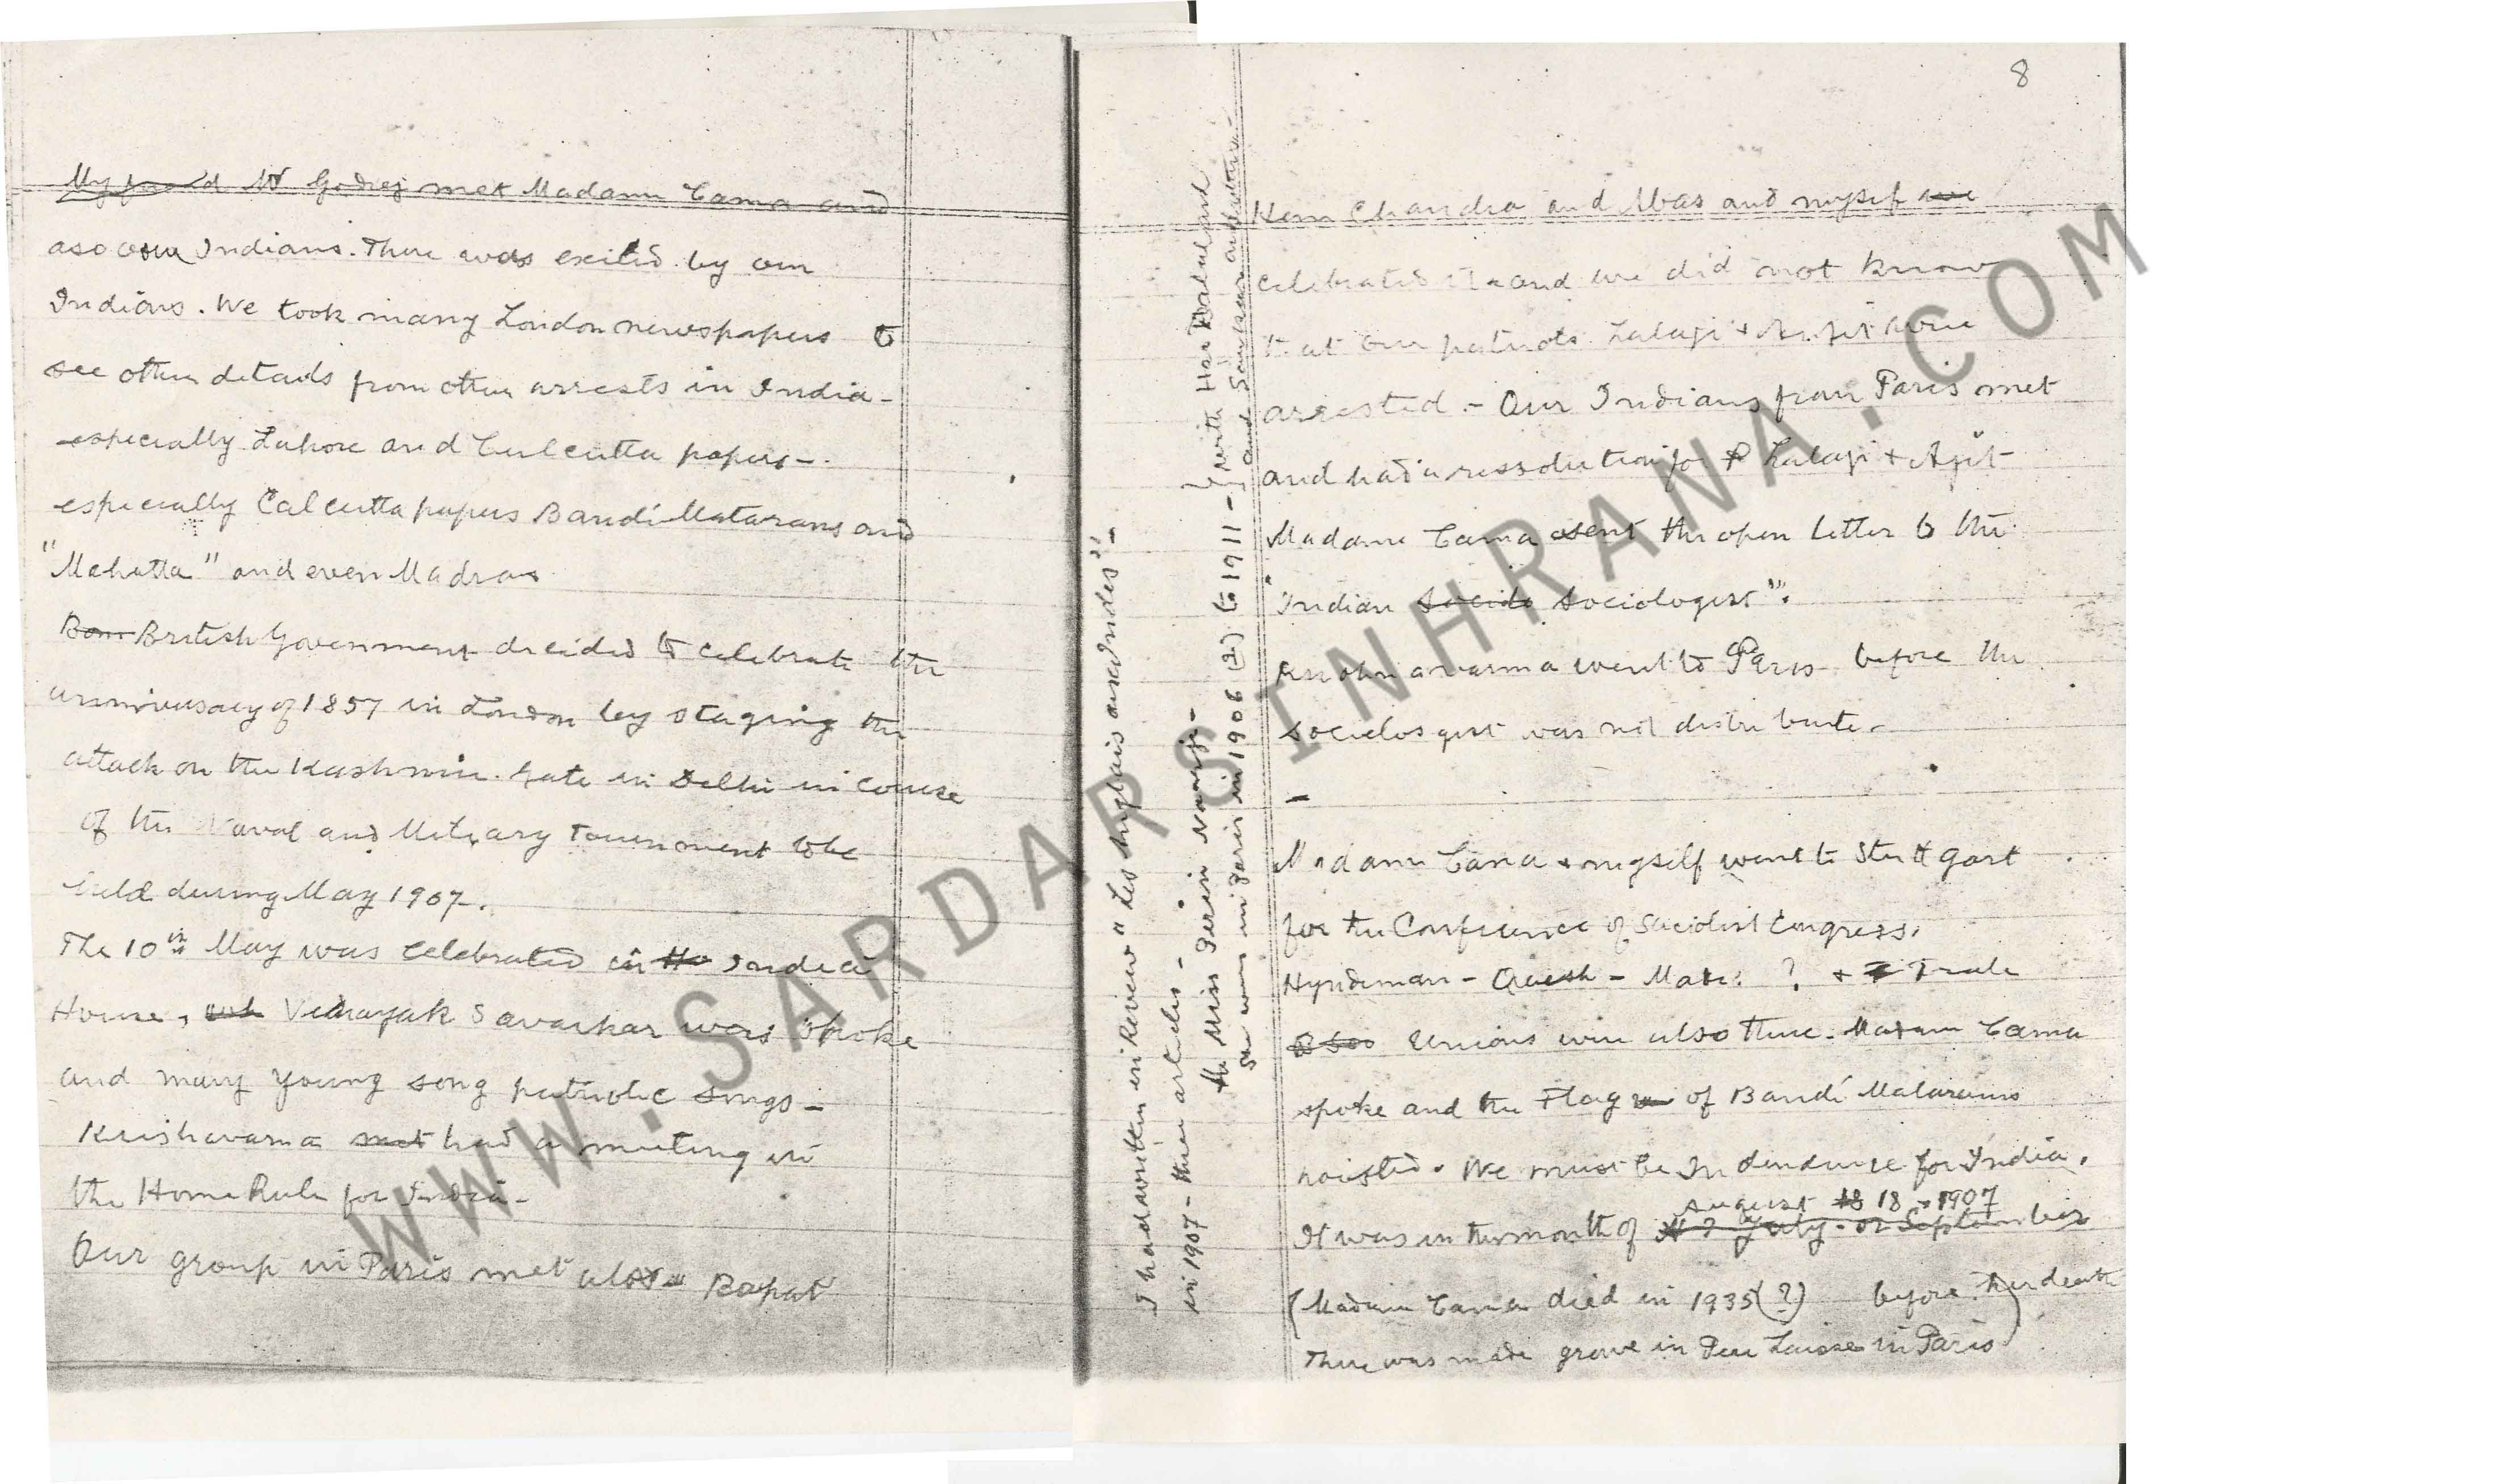 My friend Mr Godrej met Madam Cama and
aso our Indians. There was exited by our
Indians. We took many London newspapers to
see other details from other arrests in India -
especially Lahore and Culcutta papers -.
especially Calcutta papers Bandi Mataram and
"Mahatta" and even Madras
Bom British Government decided to celebrate the
anniversary of 1857 in London by staging the
attack on the Kashmire Gate in Delhi in course
of the Naval and Military Tournment to be
held during May 1907.
The 10th May was celebrated in the India
House, Vinayak Savarkar was spoke
and many young song patriotic songs -
Krishavarma met had a meeting in
the Home Rule for India -
Our group in Paris met also Bapat
8
Hem Chandra and Abas and myself are
celebrated it and we did not know
that our patriots Lalaji + Ajit were
arrested - Our Indians from Paris met
and had a ressolution for Lalaji + Ajit
Madame Cama sent the open letter to the
"Indian Sociolo Sociologist".
went to Paris before the
Sociologist was not distribute -
-
Madam Cama + myself went to Stuttgart
for the Conference of Socialist Congress,
Hyndeman - Quesh - ? + T Trade
Unions were also there. Madam Cama
spoke and the Flag of Bandi Mataram
hoisted. We must be Indendence for India.
August 18 18 - 1907
It was in the month of July - or September
(Madam Cama died in 1935(?) before her death
There was made grave in Pere Laisse in Paris)
I had written in Review "Les Anglais aux Indes" -
in 1907 - three articles -
the Miss Perin Naoroji -
She was in Paris in 1906 (?) to 1911 - { with Har Dalal and
and Savarkar and others -
WWW.SARDARSINHRANA.COM